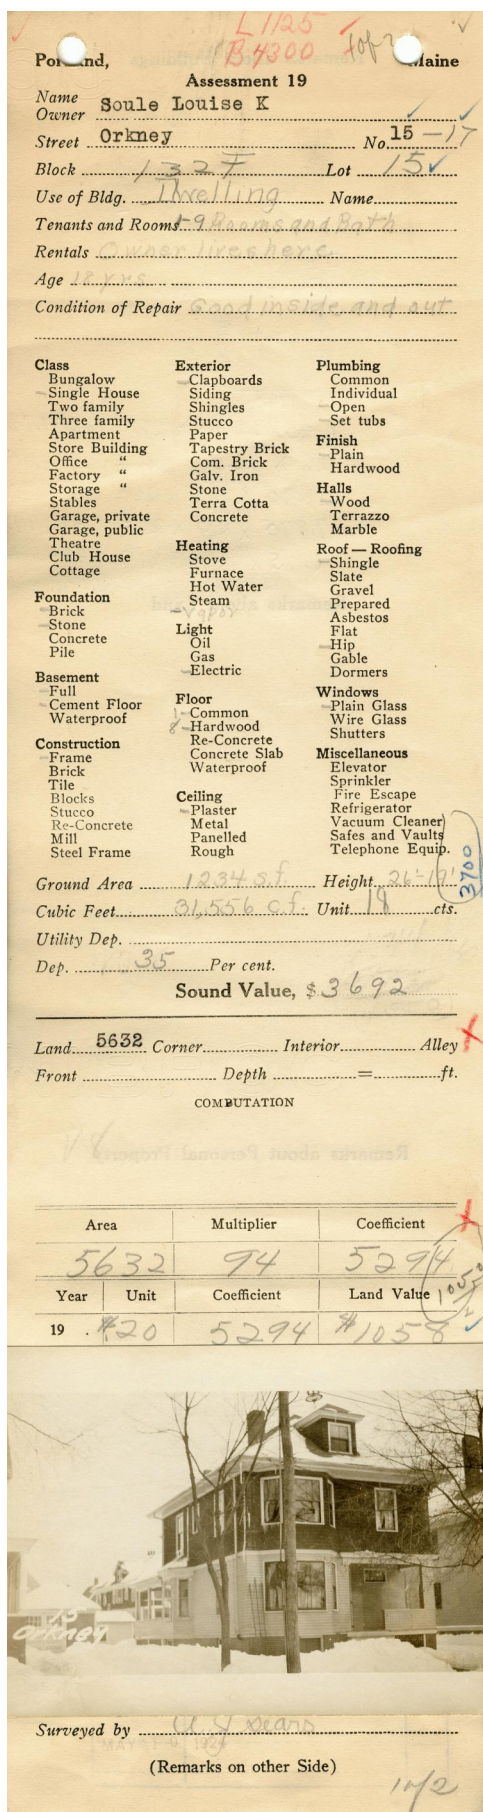 L 1125
B 4300
1 of 2
Portland, Maine
Assessment 19
Name
Owner Soule Louise K
Street Orkney No. 15 - 17
Block 132 F Lot 15
Use of Bldg. Dwelling Name
Tenants and Rooms 1-9 Rooms and Bath
Rentals Owner lives here
Age 18 yrs
Condition of Repair Good inside and out
Class
Bungalow
Single House
Two family
Three family
Apartment
Store Building
Office "
Factory "
Storage "
Stables
Garage, private
Garage, public
Theatre
Club House
Cottage
Foundation
Brick
Stone
Concrete
Pile
Basement
Full
Cement Floor
Waterproof
Construction
Frame
Brick
Tile
Blocks
Stucco
Re-Concrete
Mill
Steel Frame
Exterior
Clapboards
Siding
Shingles
Stucco
Paper
Tapestry Brick
Com. Brick
Galv. Iron
Stone
Terra Cotta
Concrete
Heating
Stove
Furnace
Hot Water
Steam
vapor
Light
Oil
Gas
Electric
Floor
1 Common
8 Hardwood
Re-Concrete
Concrete Slab
Waterproof
Ceiling
Plaster
Metal
Panelled
Rough
Plumbing
Common
Individual
Open
Set tubs
Finish
Plain
Hardwood
Halls
Wood
Terrazzo
Marble
Roof — Roofing
Shingle
Slate
Gravel
Prepared
Asbestos
Flat
Hip
Gable
Dormers
Windows
Plain Glass
Wire Glass
Shutters
Miscellaneous
Elevator
Sprinkler
Fire Escape
Refrigerator
Vacuum Cleaner
Safes and Vaults
Telephone Equip.
3700
Ground Area 1234 s.f. Height 26'-19'
Cubic Feet 31,556 c.f. Unit 18 cts.
Utility Dep.
Dep. 35 Per cent.
Sound Value, $3692
Land 5632 Corner Interior Alley
Front Depth = ft.
COMPUTATION
Area Multiplier Coefficient
5632 94 5294
Year Unit Coefficient Land Value
19 . $20 5294 $1058
15
Orkney
Surveyed by
(Remarks on other Side)